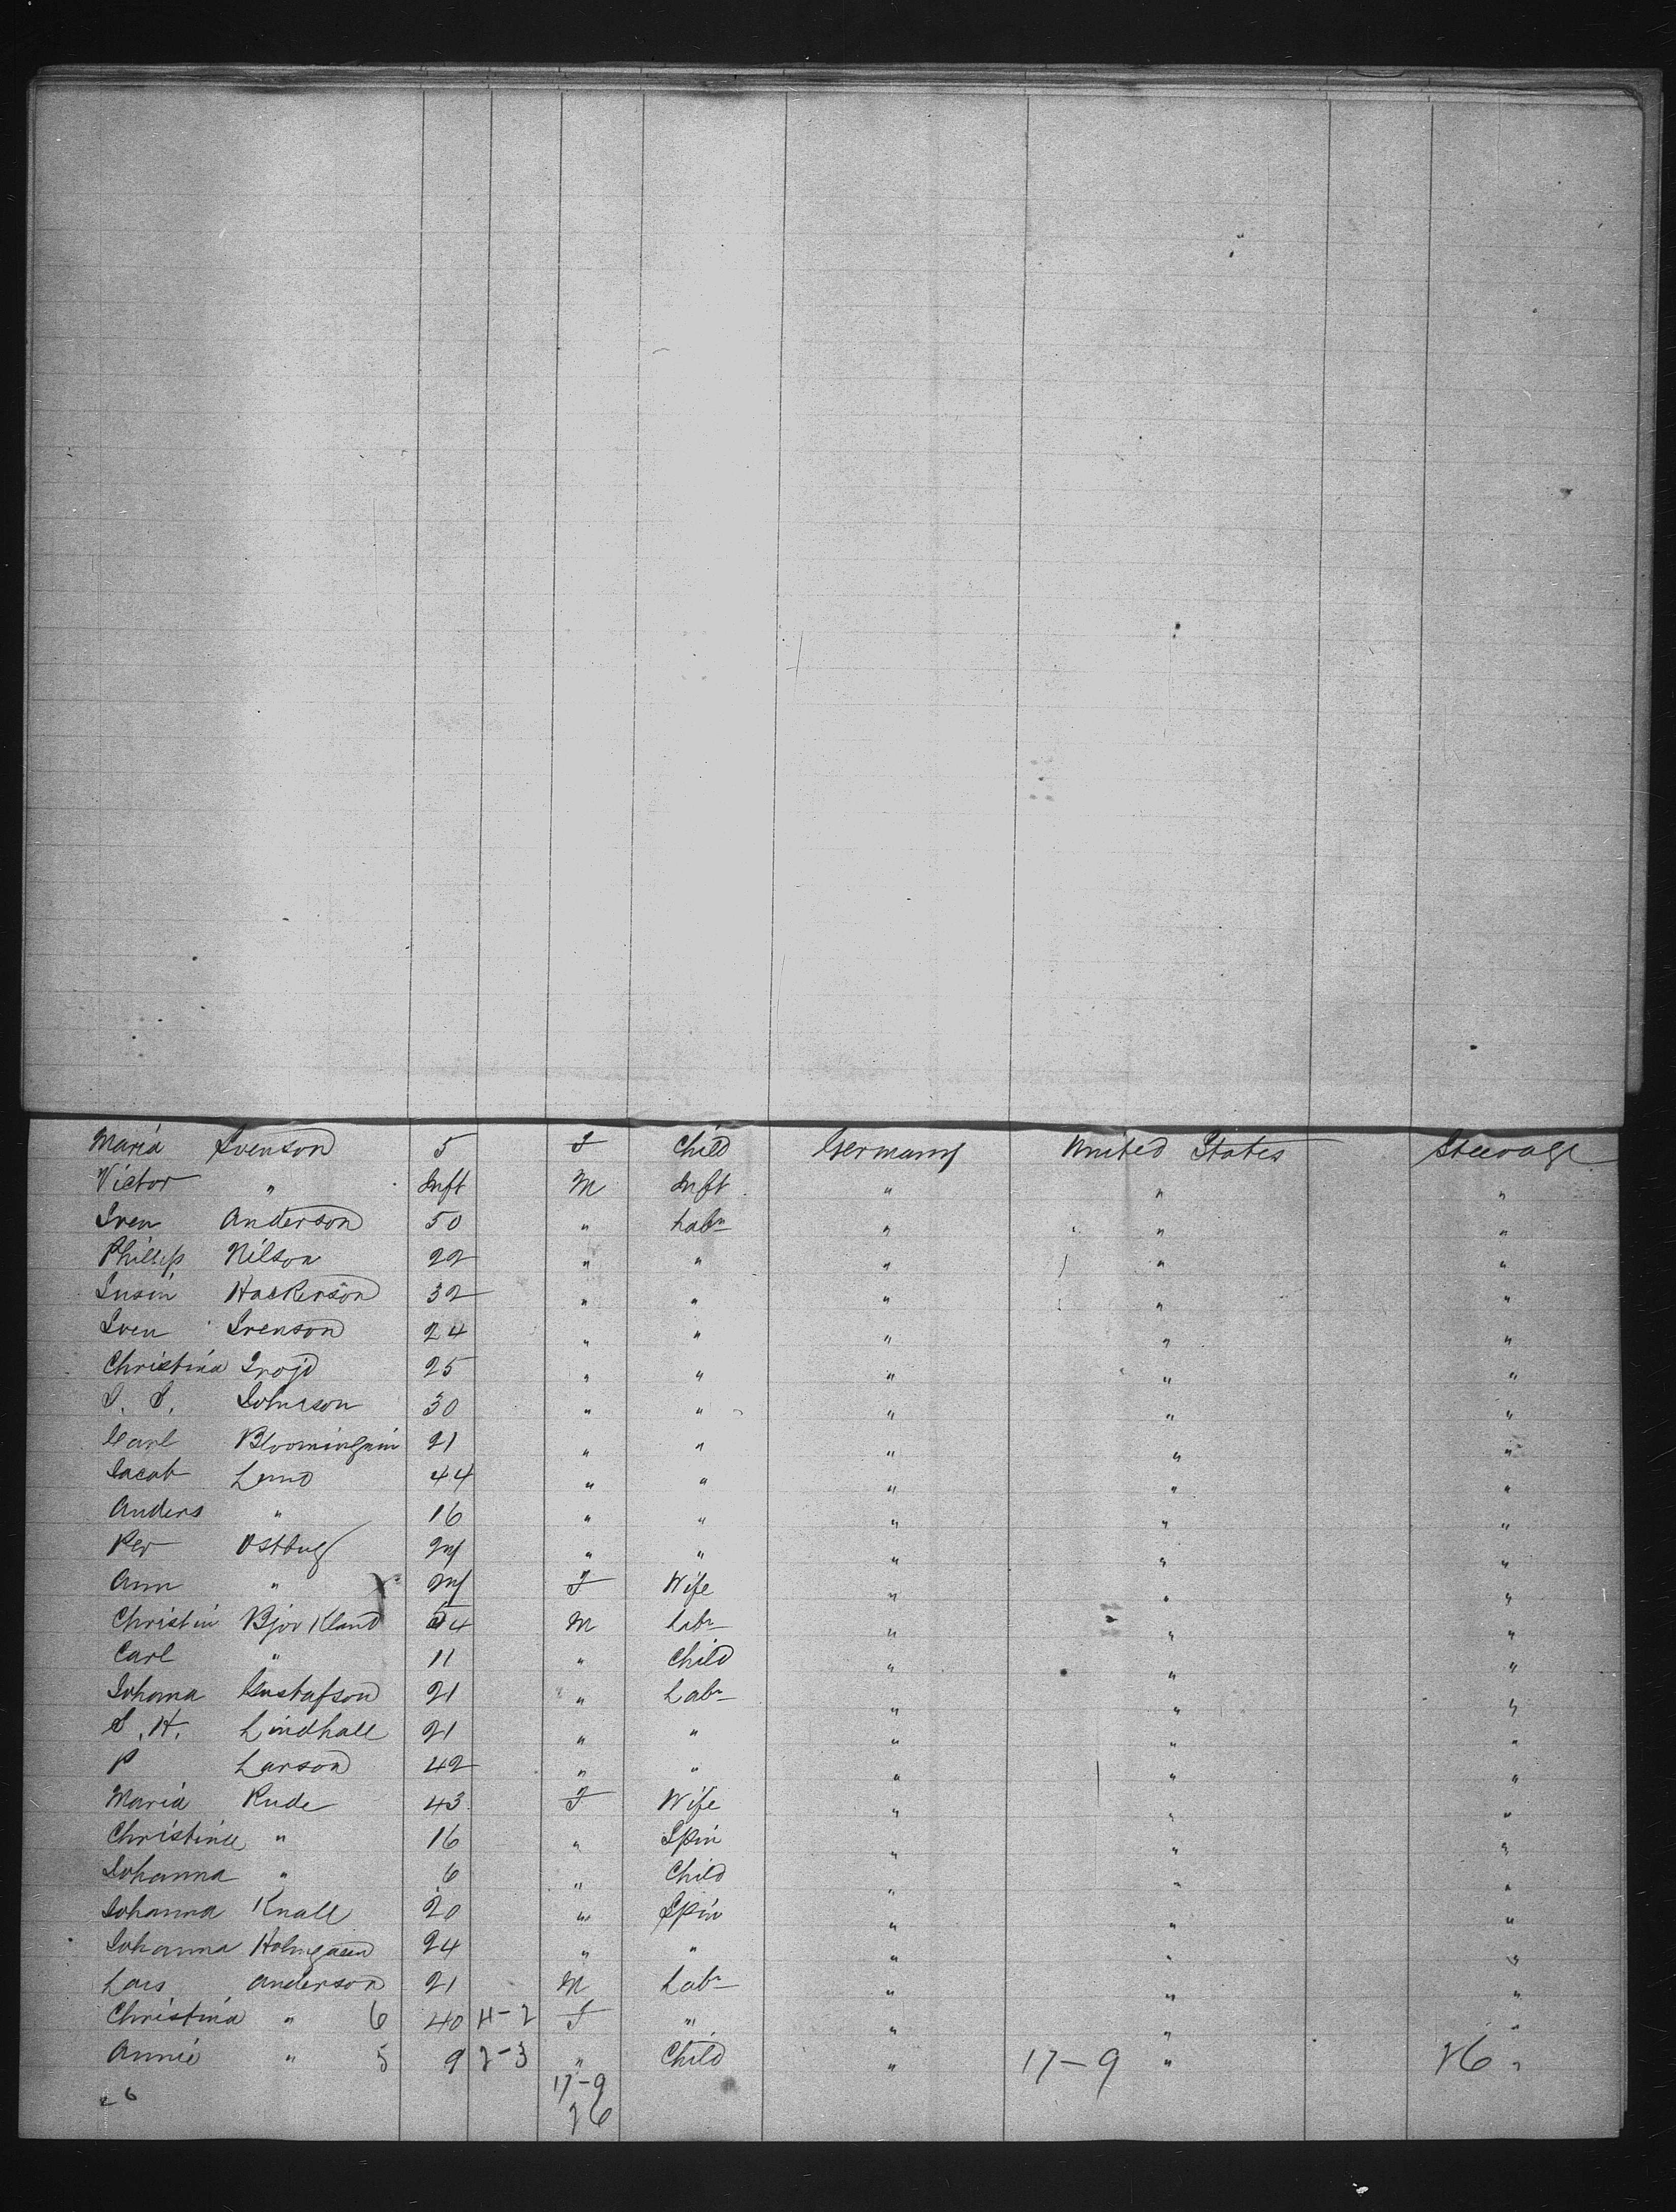 Maria Svenson 5 F Child Germany United States Steerage
Victor " Inft M Inft " " "
Sven Anderson 50 " Labr " " "
Phillip Nilson 22 " " " " "
Hackerson 32 " " " " "
Sven Svenson 24 " " " " "
Christina 25 " " " " "
S. S. Johnson 30 " " " " "
Carl 21 " " " " "
Jacob Lund 44 " " " " "
Anders " 16 " " " " "
Per " " " " "
Ann " F Wife " " "
Christin Bjorkland M Labr " " "
Carl " 11 " Child " " "
Johanna Gustafson 21 " Labr " " "
S. H. Lindhall 21 " " " " "
P Larson 42 " " " " "
Maria Rude 43 F Wife " " "
Christine " 16 " Spin " " "
Johanna " 6 " Child " " "
Johanna Knall 20 " Spin " " "
Johanna 24 " " " " "
Lars Anderson 21 M Labr " " "
Christina " 6 40 4-2 F " " " "
Annie " 5 9 2-3 " Child " 17-9 " 26 "
26 17-9
26